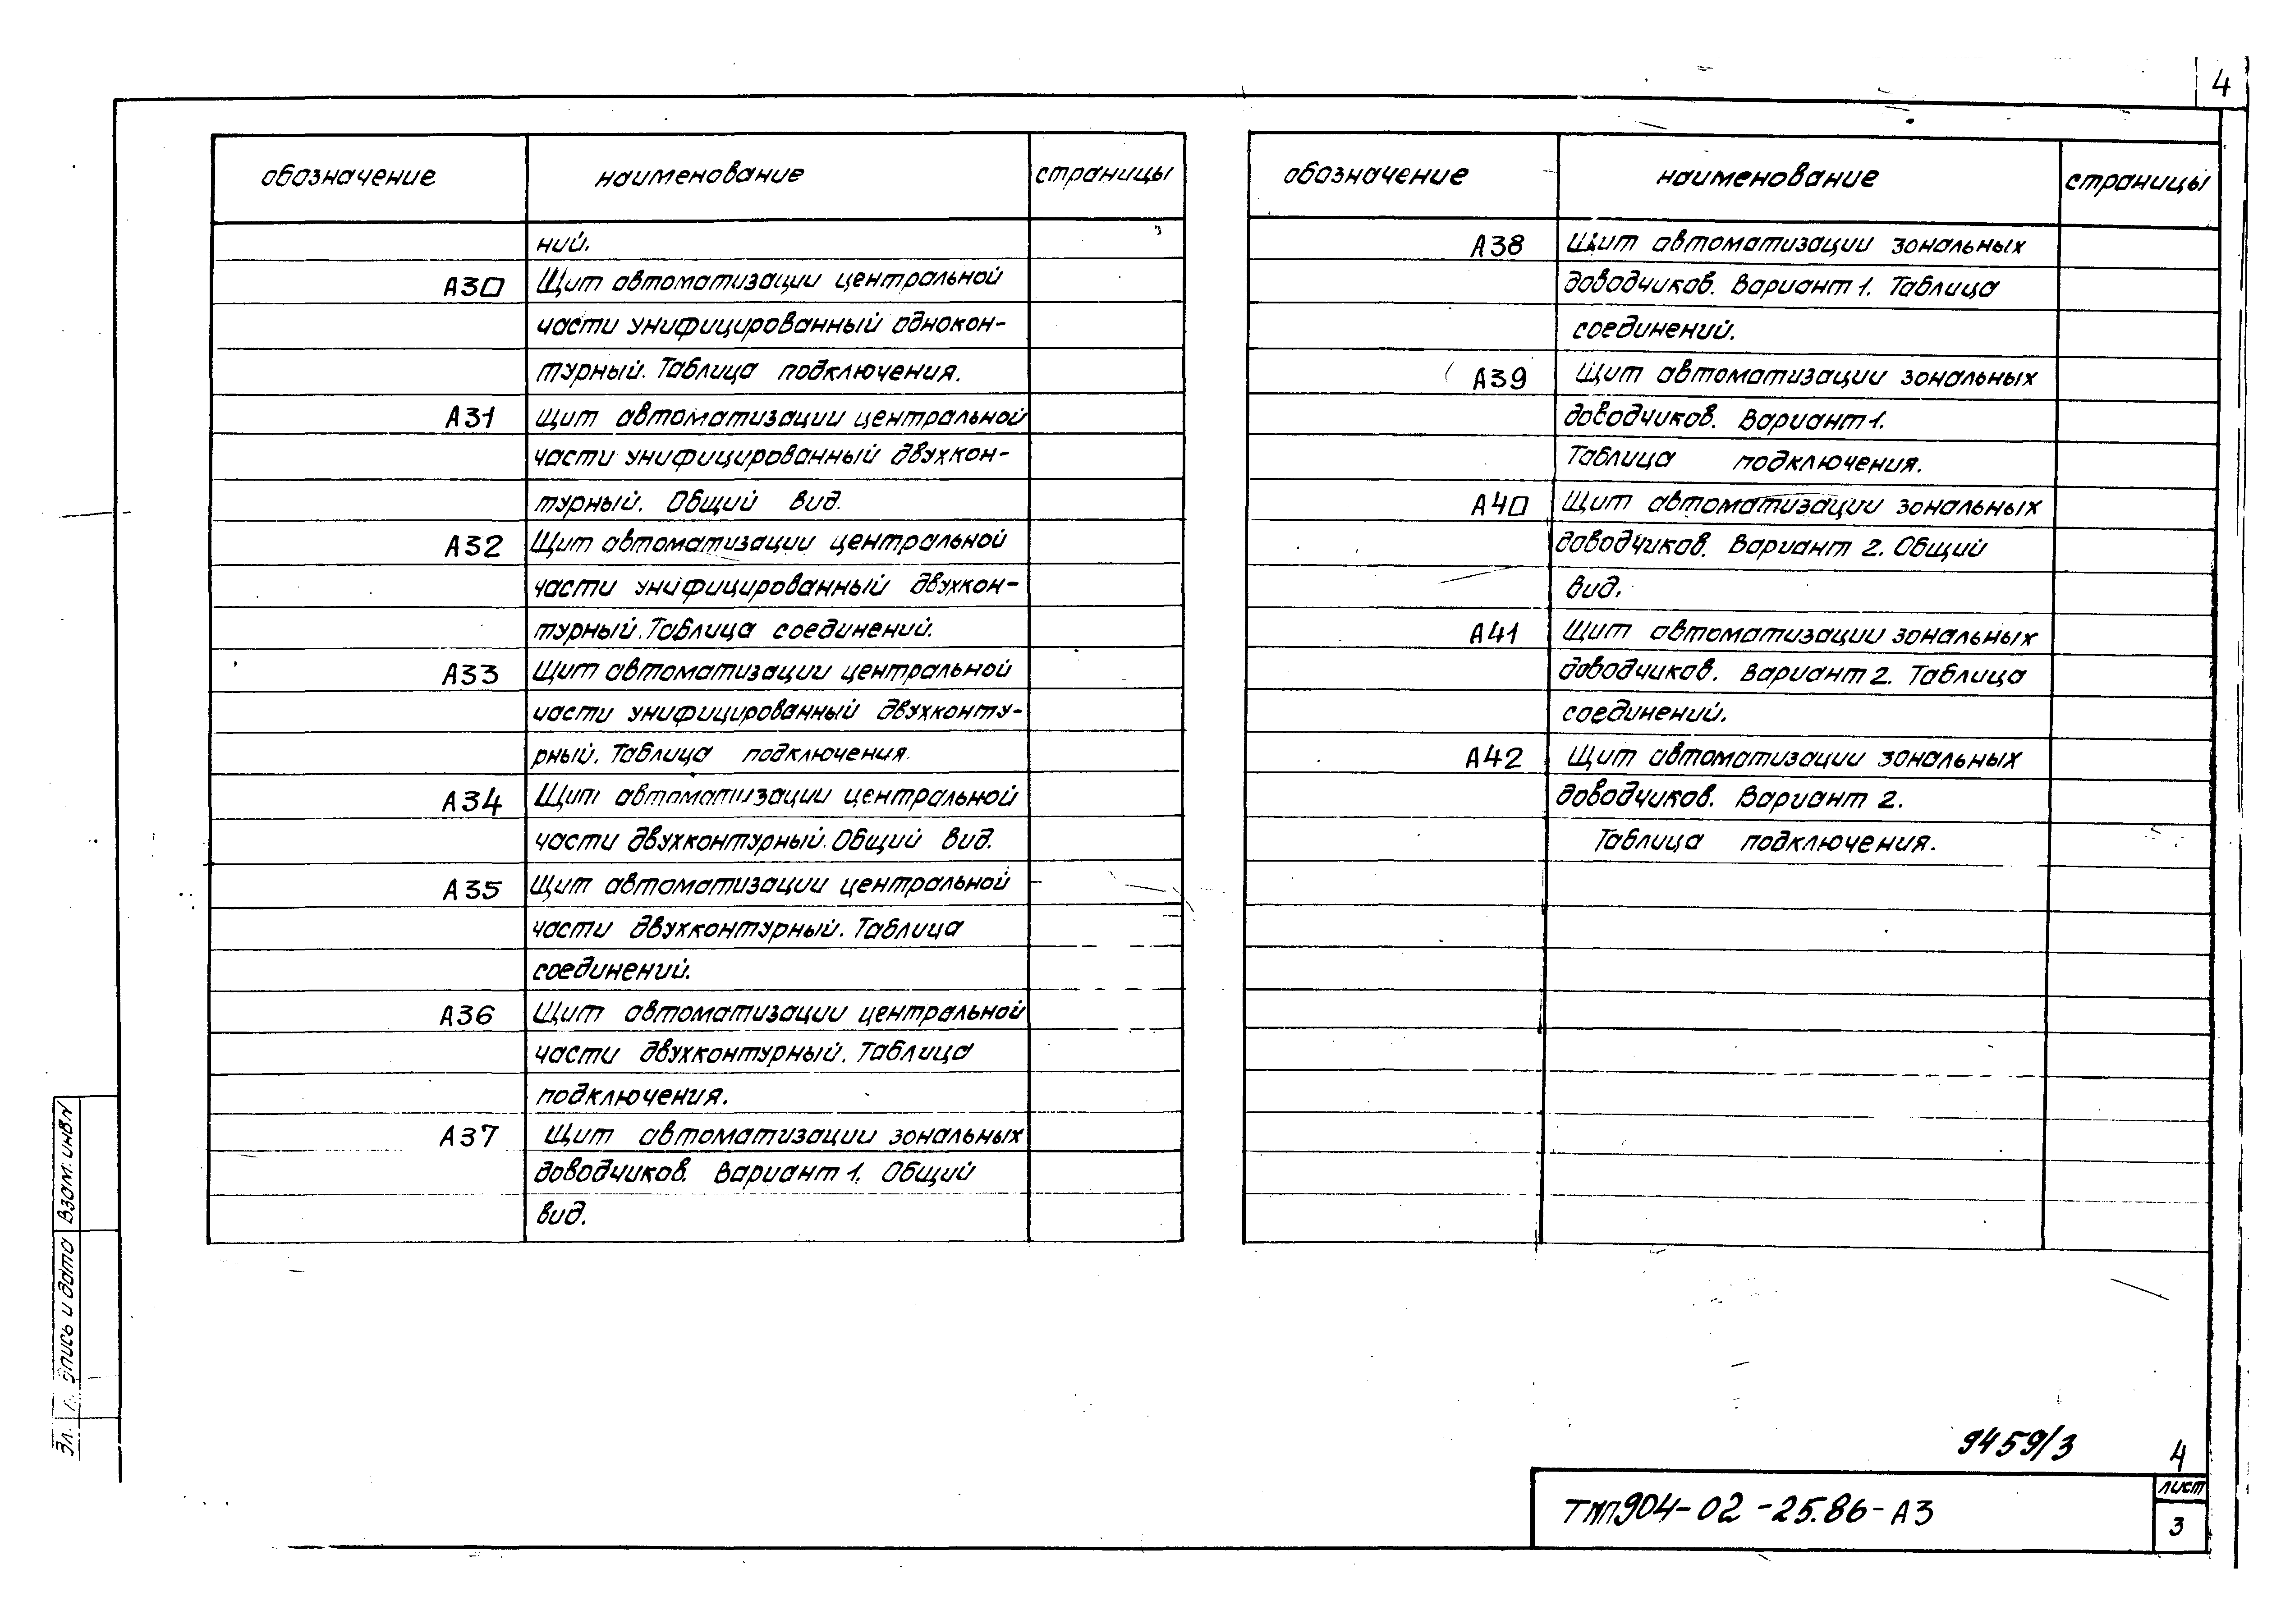 4
обозначение наименование страницы
ний.
А30 Щит автоматизации центральной
части унифицированный однокон-
турный. Таблица подключения.
А31 Щит автоматизации центральной
части унифицированный двухкон-
турный. Общий вид.
А32 Щит автоматизации центральной
части унифицированный двухкон-
турный. Таблица соединений.
А33 Щит автоматизации центральной
части унифицированный двухконту-
рный. Таблица подключения.
А34 Щит автоматизации центральной
части двухконтурный. Общий вид.
А35 Щит автоматизации центральной
части двухконтурный. Таблица
соединений.
А36 Щит автоматизации центральной
части двухконтурный. Таблица
подключения.
А37 Щит автоматизации зональных
доводчиков. Вариант 1. Общий
вид.
обозначение наименование страницы
А38 Щит автоматизации зональных
доводчиков. Вариант 1. Таблица
соединений.
А39 Щит автоматизации зональных
доводчиков. Вариант 1.
Таблица подключения.
А40 Щит автоматизации зональных
доводчиков. Вариант 2. Общий
вид.
А41 Щит автоматизации зональных
доводчиков. Вариант 2. Таблица
соединений.
А42 Щит автоматизации зональных
доводчиков. Вариант 2.
Таблица подключения.
Взам. инв N
дпись и дата
9459/3 4
ТМП904-02-25.86-А3
лист
3